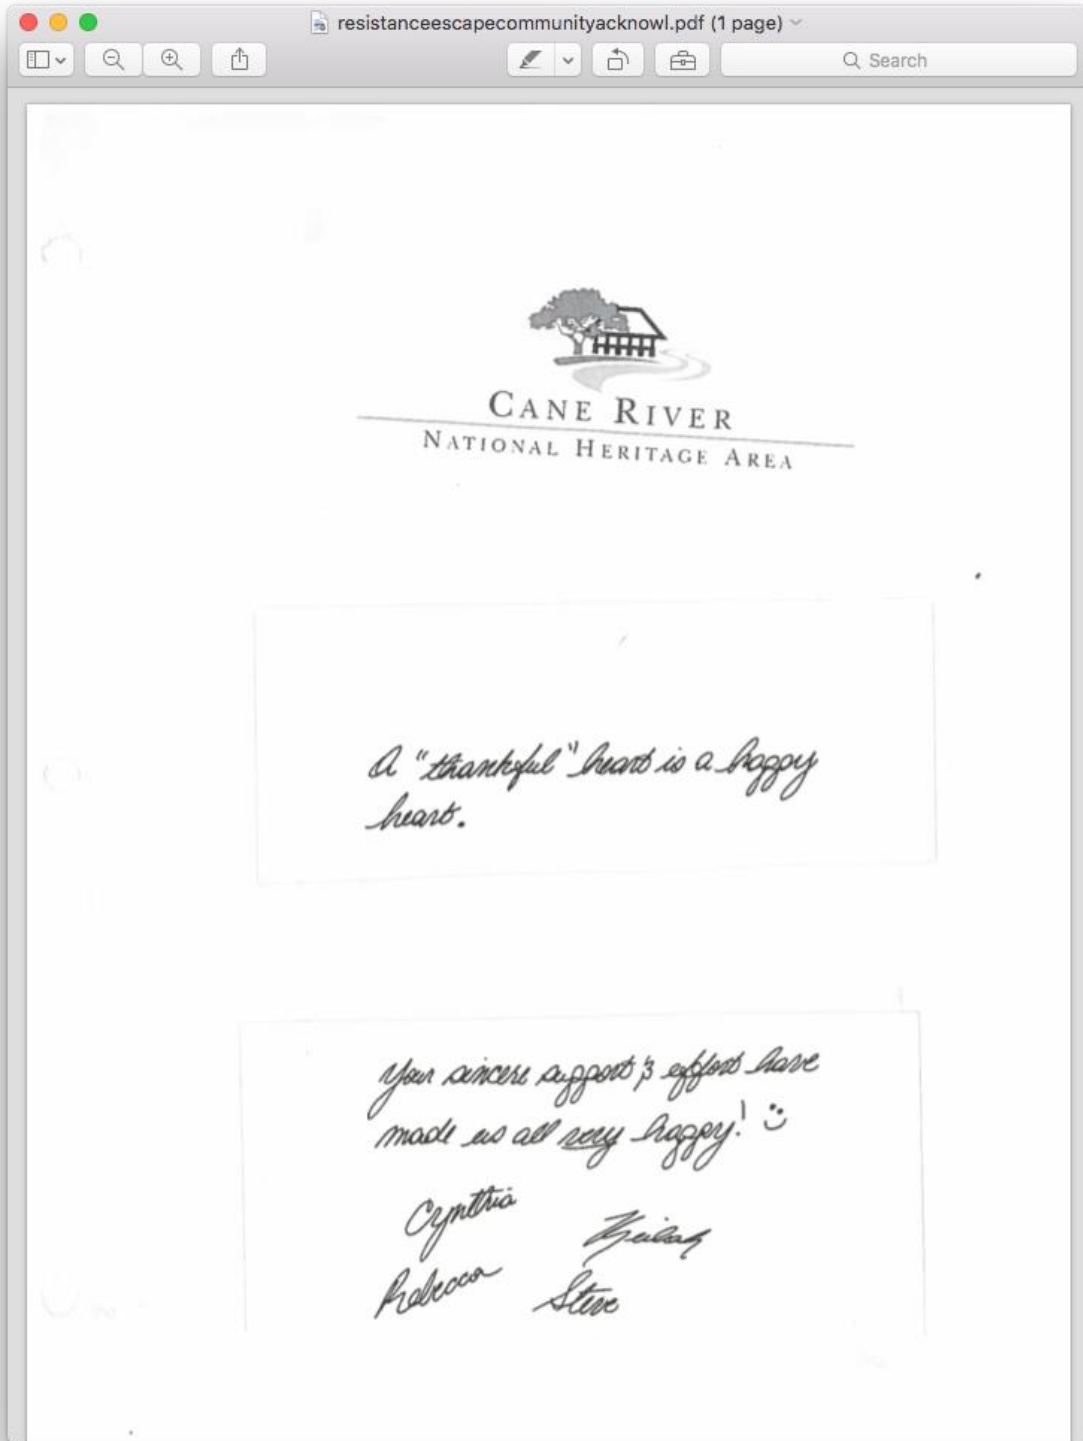 resistanceescapecommunityacknowl.pdf (1 page)
Search
CANE RIVER
NATIONAL HERITAGE AREA
A "thankful" heart is a happy
heart.
Your sincere support & effort have
made us all very happy! :)
Cynthia
Rebecca Steve